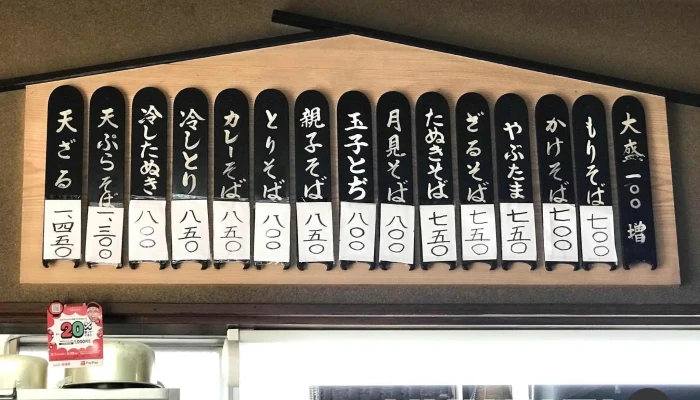 大盛 一〇〇 増
もりそば 七〇〇
かけそば 七〇〇
やぶたま 七五〇
ざるそば 七五〇
たぬきそば 七五〇
月見そば 八〇〇
玉子とぢ 八〇〇
親子そば 八五〇
とりそば 八〇〇
カレーそば 八五〇
冷しとり 八五〇
冷したぬき 八〇〇
天ぷらそば 一、三〇〇
天ざる 一、四五〇
20%
PayPay